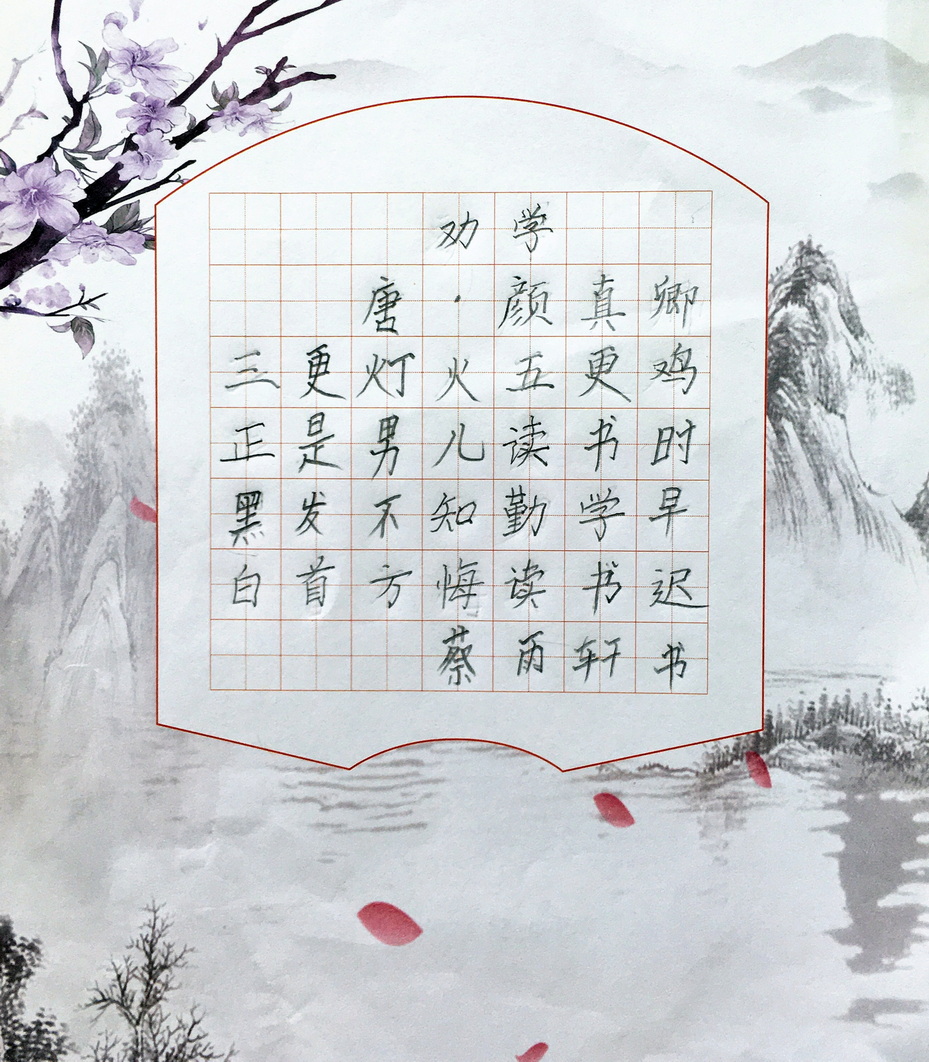 劝学
唐·颜真卿
三更灯火五更鸡
正是男儿读书时
黑发不知勤学早
白首方悔读书迟
蔡雨轩书